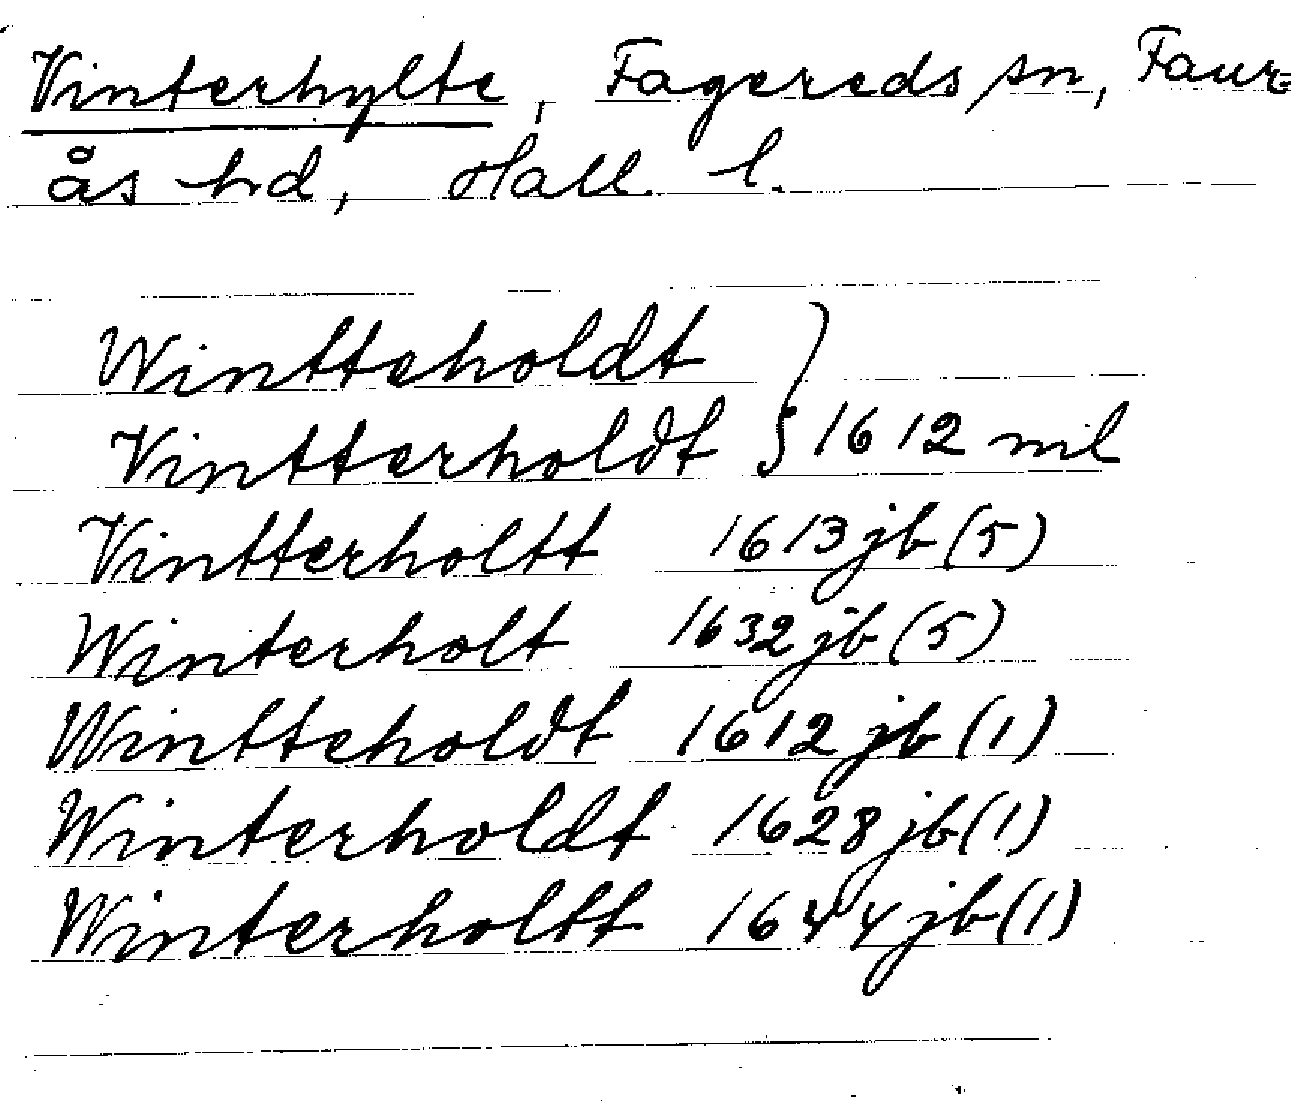 Vinterhylte, Fagereds sn, Faur-
ås hd, Hall. l.
Wintteholdt
Vintterholdt } 1612 mil
Vintterholtt 1613 jb (5)
Winterholt 1632 jb (5)
Wintteholdt 1612 jb (1)
Winterholdt 1628 jb (1)
Winterholtt 1644 jb (1)